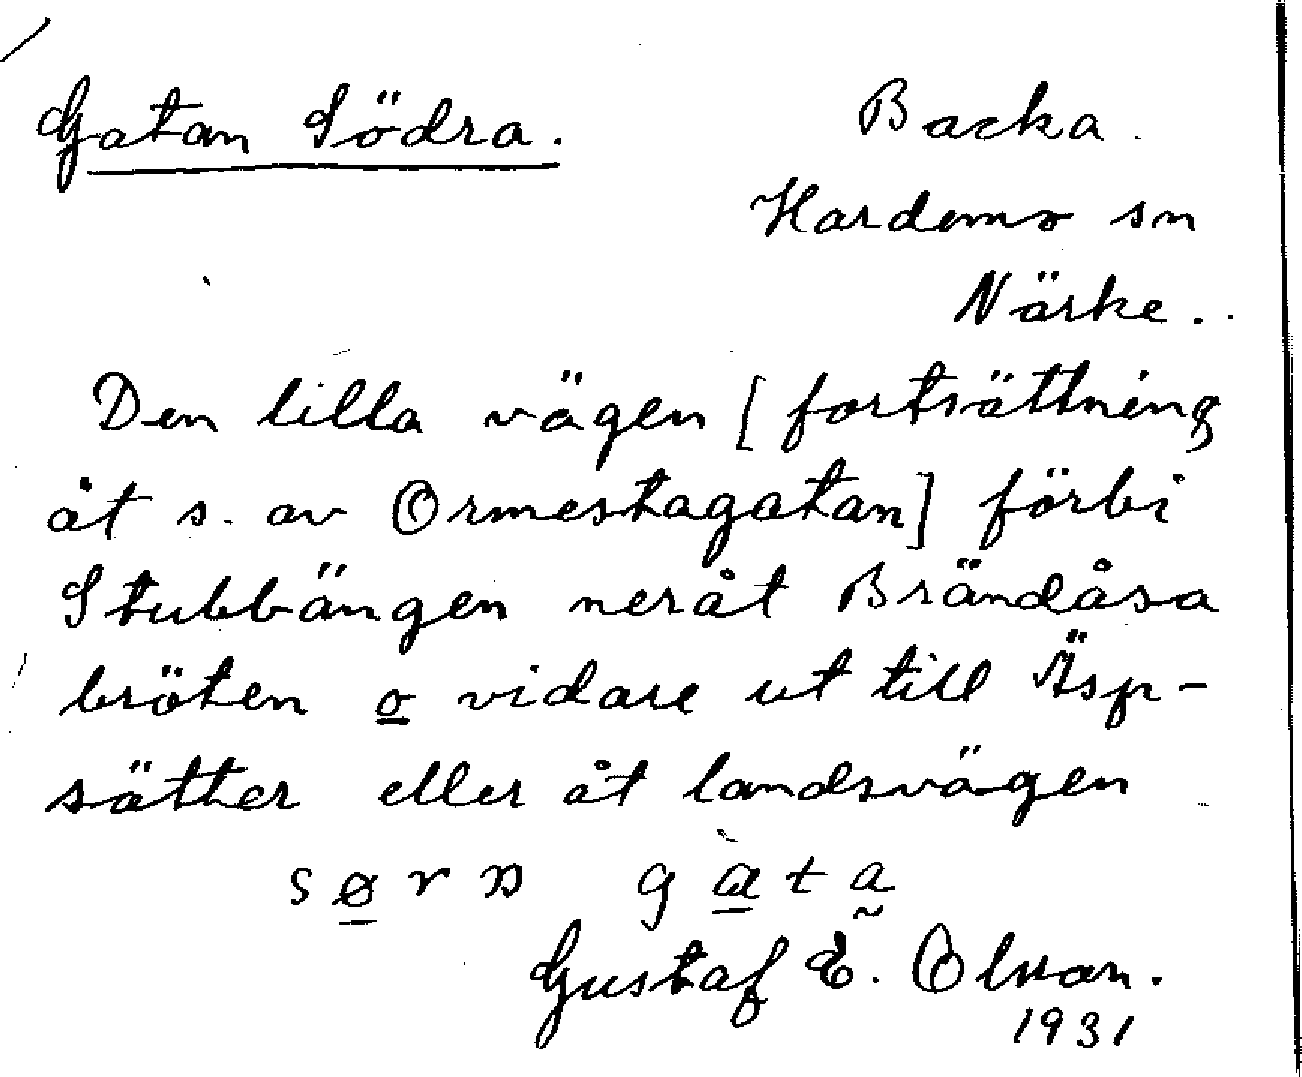 Gatan Södra.
Backa.
Hardemo sn
Närke.
Den lilla vägen [fortsättning
åt s. av Ormestagatan] förbi
Stubbängen neråt Brändåsa
bröten o vidare ut till Äsp-
sätter eller åt landsvägen
Gustaf E. Olson.
1931